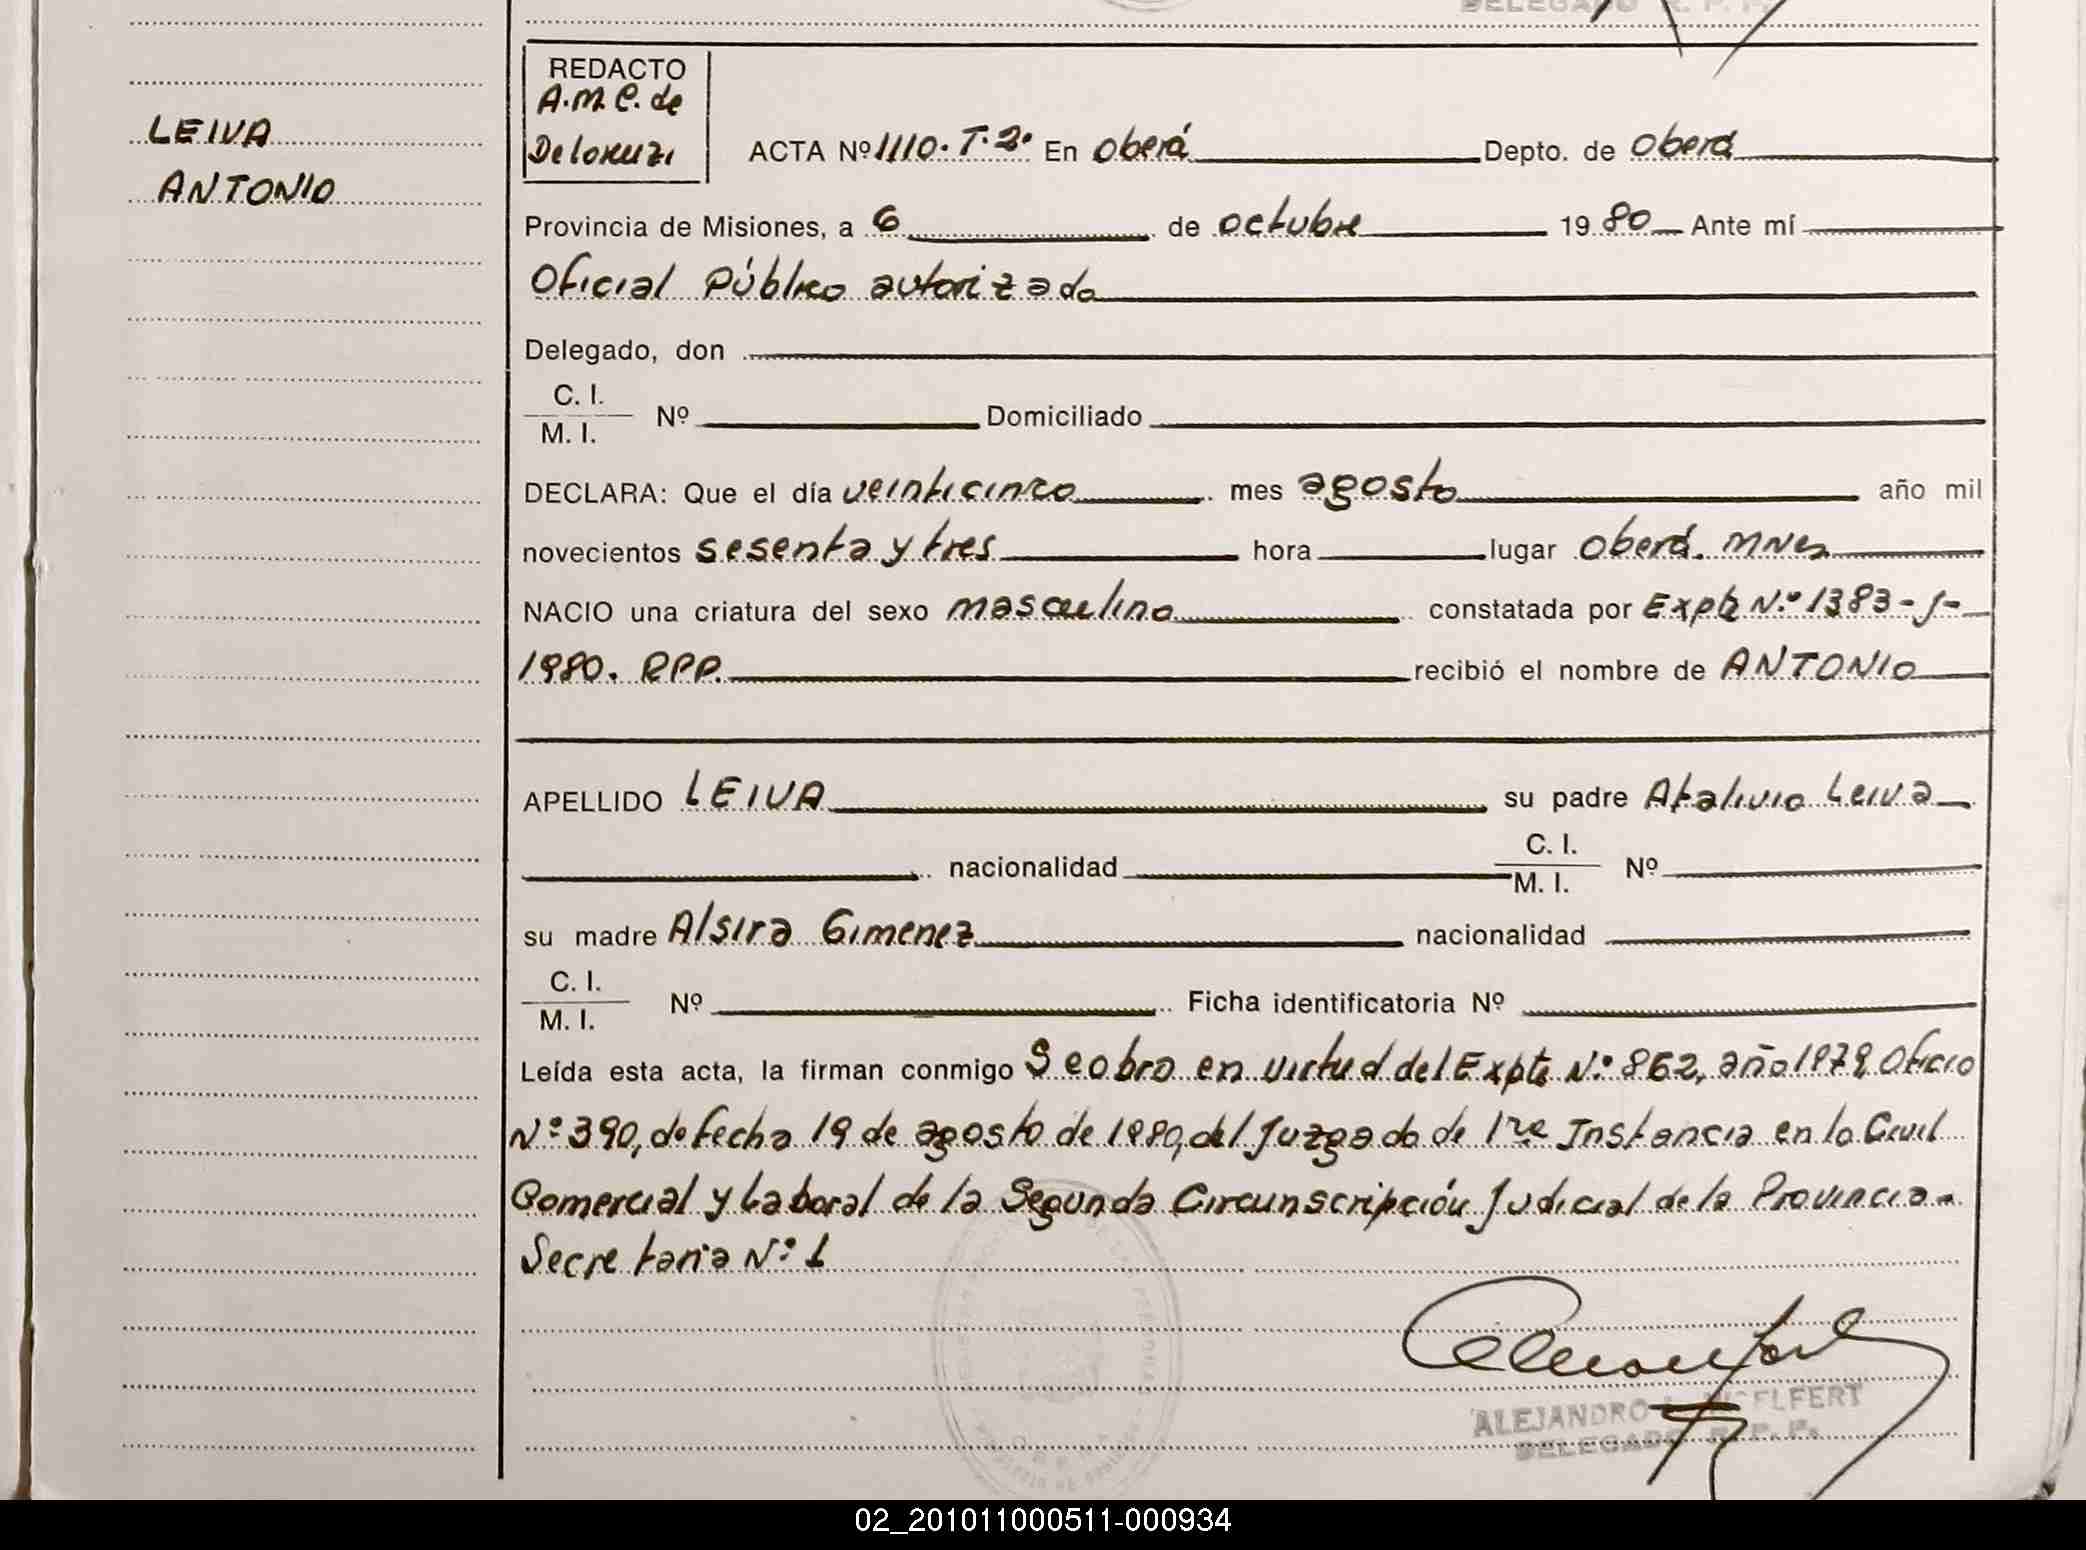 DELEGADO R. P. P.
LEIVA
ANTONIO
REDACTO
A.M.C. de
Delorenzi
ACTA Nº 1110. T. 2º En Oberá Depto. de Oberá
Provincia de Misiones, a 6 de octubre 19 80 Ante mí
Oficial Público autorizado
Delegado, don
C. I.
M. I. Nº Domiciliado
DECLARA: Que el día veinticinco mes agosto año mil
novecientos sesenta y tres hora lugar Oberá. Mnes
NACIO una criatura del sexo masculino constatada por Expte N.º 1383-J-
1980. RPP. recibió el nombre de ANTONIO
APELLIDO LEIVA su padre Atalivio Leiva
nacionalidad C. I.
M. I. Nº
su madre Alsira Gimenez nacionalidad
C. I.
M. I. Nº Ficha identificatoria Nº
Leída esta acta, la firman conmigo Se obro en virtud del Expte N.º 862, año 1979, Oficio
Nº 390, de fecha 19 de agosto de 1980, del Juzgado de 1ra Instancia en lo Civil
Comercial y Laboral de la Segunda Circunscripción Judicial de la Provincia-
Secretaria N.º 1
ALEJANDRO
DELEGADO R. P. P.
02_201011000511-000934